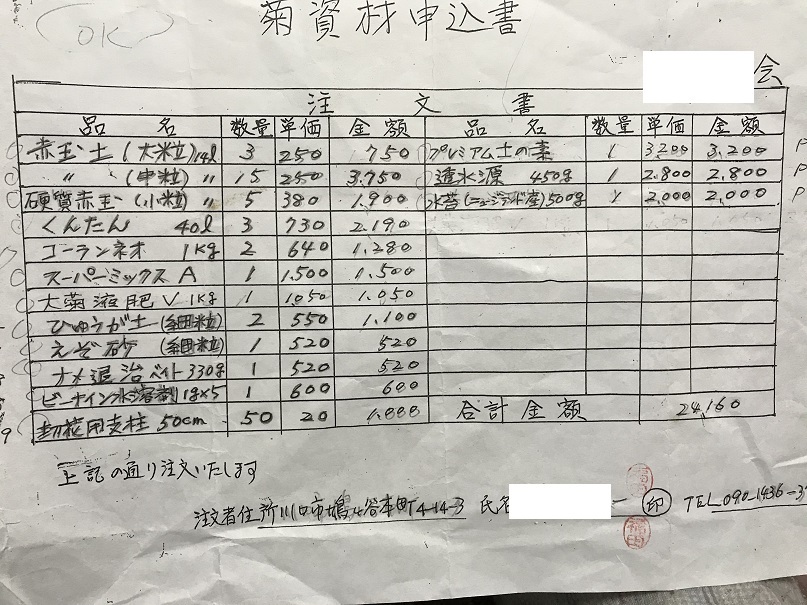 OK
菊資材申込書
会
注文書
品名 数量 単価 金額 品名 数量 単価 金額
赤玉土(大粒)14l 3 250 750 プレミアム土の素 1 3200 3.200
〃 (中粒) 〃 15 250 3.750 速水源 450g 1 2.800 2.800
硬質赤玉(小粒) 〃 5 380 1.900 水苔(ニュージランド産)500g 1 2,000 2,000
くんたん 40l 3 730 2.190
コーランネオ 1Kg 2 640 1.280
スーパーミックス A 1 1,500 1,500
大菊液肥 V 1Kg 1 1050 1.050
ひゅうが土(細粒) 2 550 1.100
えぞ砂 (細粒) 1 520 520
ナメ退治ベイト 330g 1 520 520
ビーナイン水溶剤 1g×5 1 600 600
切花用支柱 50cm 50 20 1.000 合計金額 24,160
上記の通り注文いたします
注文者住所 川口市鳩ヶ谷本町4-14-3 氏名 印 TEL 090-1436-3